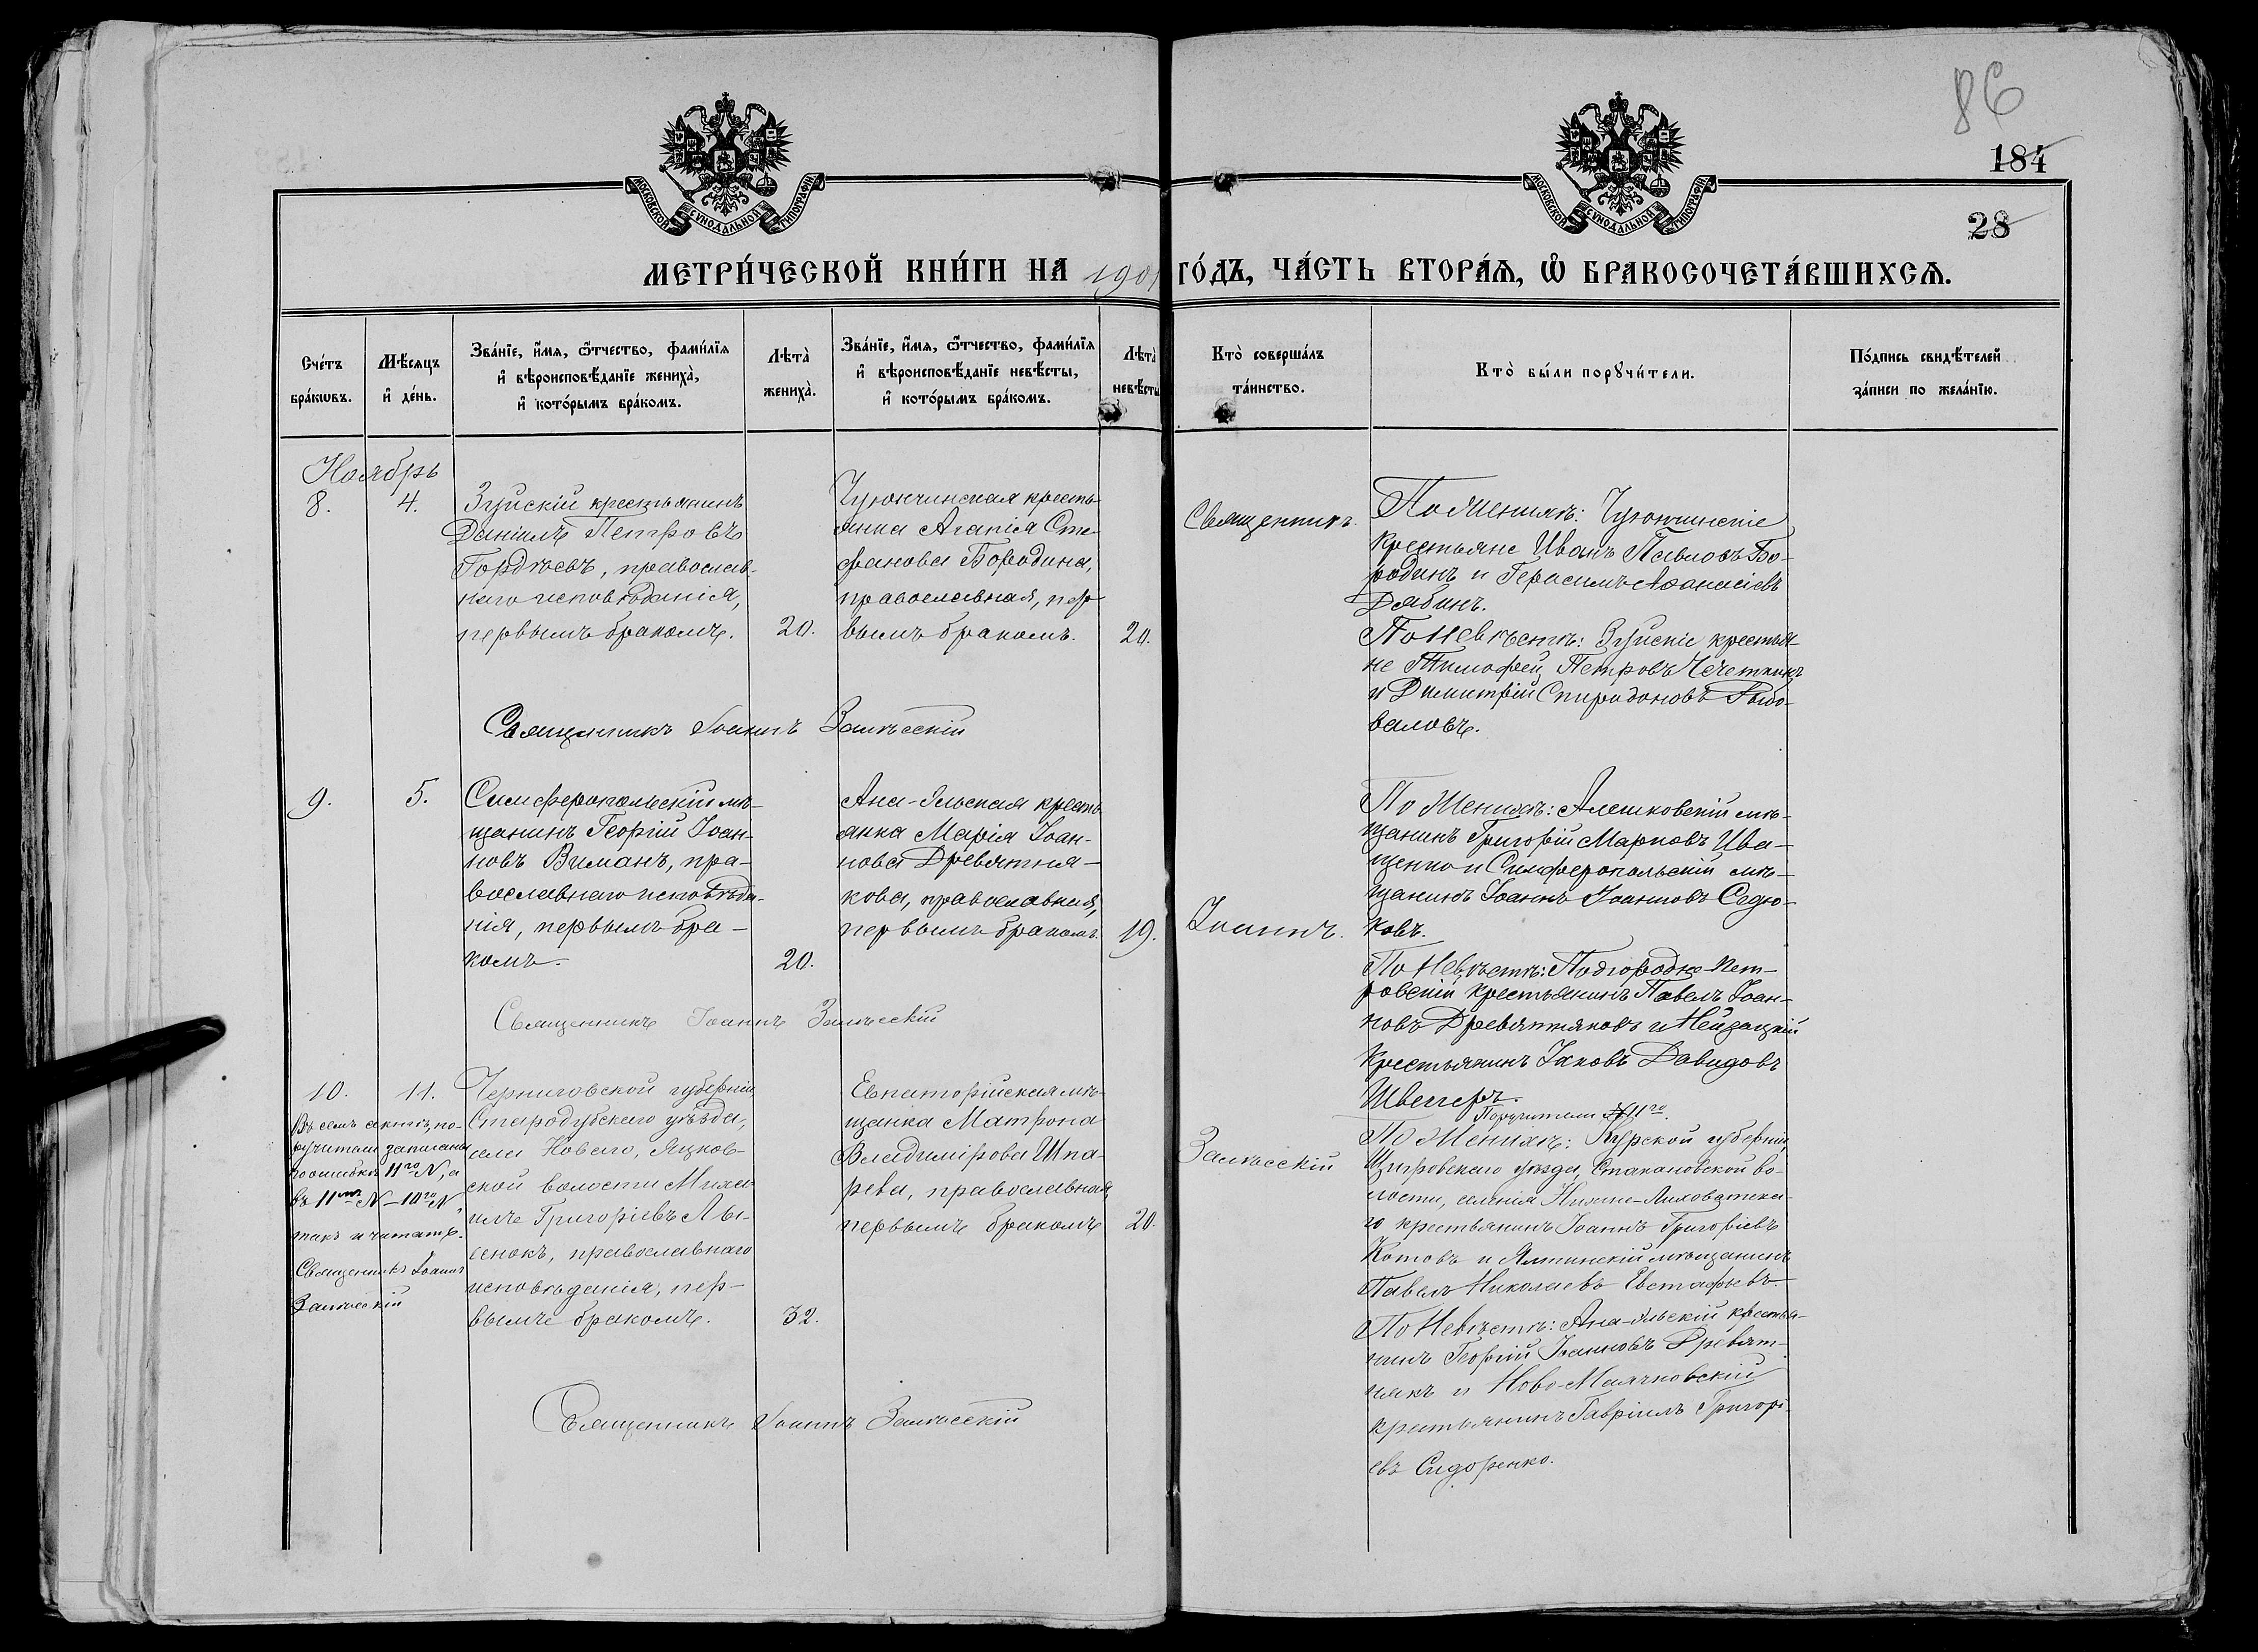 86
184
28
МОСКОВСКОЙ СѴНОДАЛЬНОЙ ТИПОГРАФІИ
МОСКОВСКОЙ СѴНОДАЛЬНОЙ ТИПОГРАФІИ
МЕТРИ́ЧЕСКОЙ КНИ́ГИ НА 1901 ГО́ДЪ, ЧА́СТЬ ВТОРА́Ѧ, Ѽ БРАКОСОЧЕТА́ВШИХСѦ.
Сче́тъ
бра́кѡвъ.
Мѣ́сѧцъ
и҆ де́нь.
Зва́нїе, и҆́мѧ, ѻ҆́тчество, фами́лїѧ
и҆ вѣроисповѣ́данїе жениха̀,
и҆ кото́рымъ бра́комъ.
Лѣта̀
жениха̀.
Зва́нїе, и҆́мѧ, ѻ҆́тчество, фами́лїѧ
и҆ вѣроисповѣ́данїе невѣ́сты,
и҆ кото́рымъ бра́комъ.
Лѣта̀
невѣ́сты
Кто̀ соверша́лъ
та́инство.
Кто̀ бы́ли порꙋчи́тели.
По́дпись свидѣ́телей
за́писи по жела́нїю.
Ноябрь
8.
4.
Зуйскій крестьянинъ
Даніилъ Петровъ
Гордѣевъ, православ-
наго исповѣданія,
первымъ бракомъ.
20.
Чуюнчинская кресть-
янка Агапія Сте-
фанова Бородина,
православная, пер-
вымъ бракомъ.
20.
Священникъ
По Женихѣ: Чуюнчинскіе
крестьяне Иванъ Павловъ Бо-
родинъ и Герасимъ Аѳанасіевъ
Дябинъ.
По Невѣстѣ: Зуйскіе крестья-
не Тимофей Петровъ Чечеткинъ
и Димитрій Спиридоновъ Рыбо-
валовъ.
Священникъ Іоаннъ Залѣсскій
9.
5.
Симферопольскій мѣ-
щанинъ Георгій Іоан-
новъ Виманъ, пра-
вославнаго исповѣда-
нія, первымъ бра-
комъ.
20.
Ана-Эльская кресть-
янка Марія Іоан-
нова Древятня-
кова, православная,
первымъ бракомъ.
19.
Іоаннъ.
По Женихѣ: Алешковскій мѣ-
щанинъ Григорій Марковъ Ива-
щенко и Симферопольскій мѣ-
щанинъ Іоаннъ Іоанновъ Седю-
ковъ.
По Невѣстѣ: Подгородне-Пет-
ровскій крестьянинъ Павелъ Іоан-
новъ Древятняковъ и Нейзацкій
крестьянинъ Іаковъ Давидовъ
Швегеръ.
Священникъ Іоаннъ Залѣсскій
10.
11.
Въ семъ актѣ, по-
ручители записаны
по ошибкѣ 11го №, а
въ 11мъ № – 10го №
такъ и читать.
Священникъ Іоаннъ
Залѣсскій
Черниговской губерніи,
Стародубскаго уѣзда,
села Новаго, Яцков-
ской волости Миха-
илъ Григоріевъ Лы-
сенокъ, православнаго
исповѣданія, пер-
вымъ бракомъ.
32.
Евпаторійская мѣ-
щанка Матрона
Владимірова Шпа-
рева, православная,
первымъ бракомъ
20.
Залѣсскій
Поручители № 11го.
По Женихѣ: Курской губерніи,
Щигровскаго уѣзда, Стакановской во-
лости, селенія
го крестьянинъ Іоаннъ Григоріевъ
Котовъ и Ялтинскій мѣщанинъ
Павелъ Николаевъ Евстафьевъ.
По Невѣстѣ: Ана-Эльскій крестья-
нинъ Георгій Іоанновъ Древят-
някъ и Ново-Маячковскій
крестьянинъ Гавріилъ Григорі-
евъ Сидоренко.
Священникъ Іоаннъ Залѣсскій